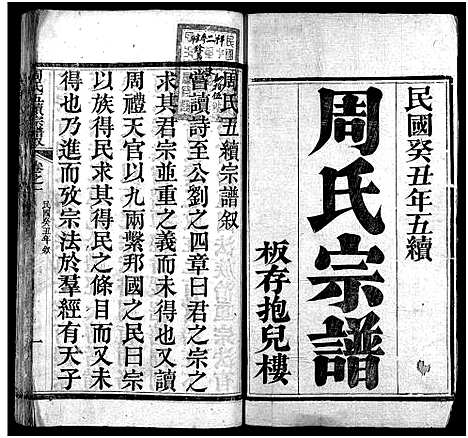 民國癸丑年五續
周氏宗譜
板存抱兒樓
周氏五續宗譜敘
嘗讀詩至公劉之四章曰君之宗之
求其君宗並重之義而未得也又讀
周禮天官以九兩繫邦國之民曰宗
以族得民求其得民之條目而又未
得也乃進而攷宗法於羣經有天子
民國癸丑年敘
一